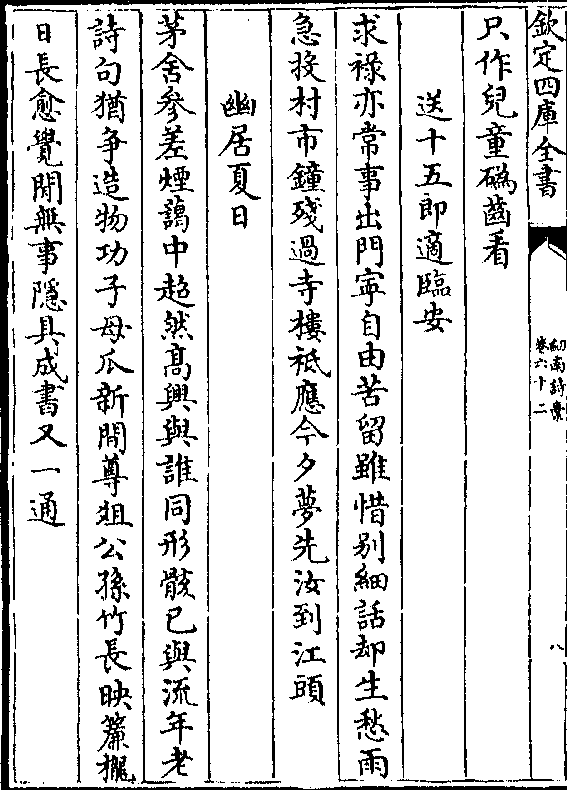 欽定四庫全書
劒南詩藳
卷六十二
八
只作兒童礪齒看
送十五郎適臨安
求祿亦常事出門寧自由苦留雖惜别細話却生愁雨
急投村市鐘殘過寺樓祗應今夕夢先汝到江頭
幽居夏日
茅舍參差煙藹中超然髙興與誰同形骸已與流年老
詩句猶争造物功子母瓜新間尊俎公孫竹長映簾櫳
日長愈覺閒無事隱具成書又一通